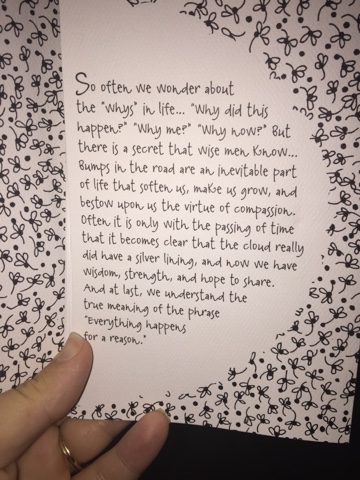 So often we wonder about
the "whys" in life... "Why did this
happen?" "Why me?" "Why now?" But
there is a secret that wise men know...
Bumps in the road are an inevitable part
of life that soften us, make us grow, and
bestow upon us the virtue of compassion.
Often it is only with the passing of time
that it becomes clear that the cloud really
did have a silver lining, and now we have
wisdom, strength, and hope to share.
And at last, we understand the
true meaning of the phrase
"Everything happens
for a reason."